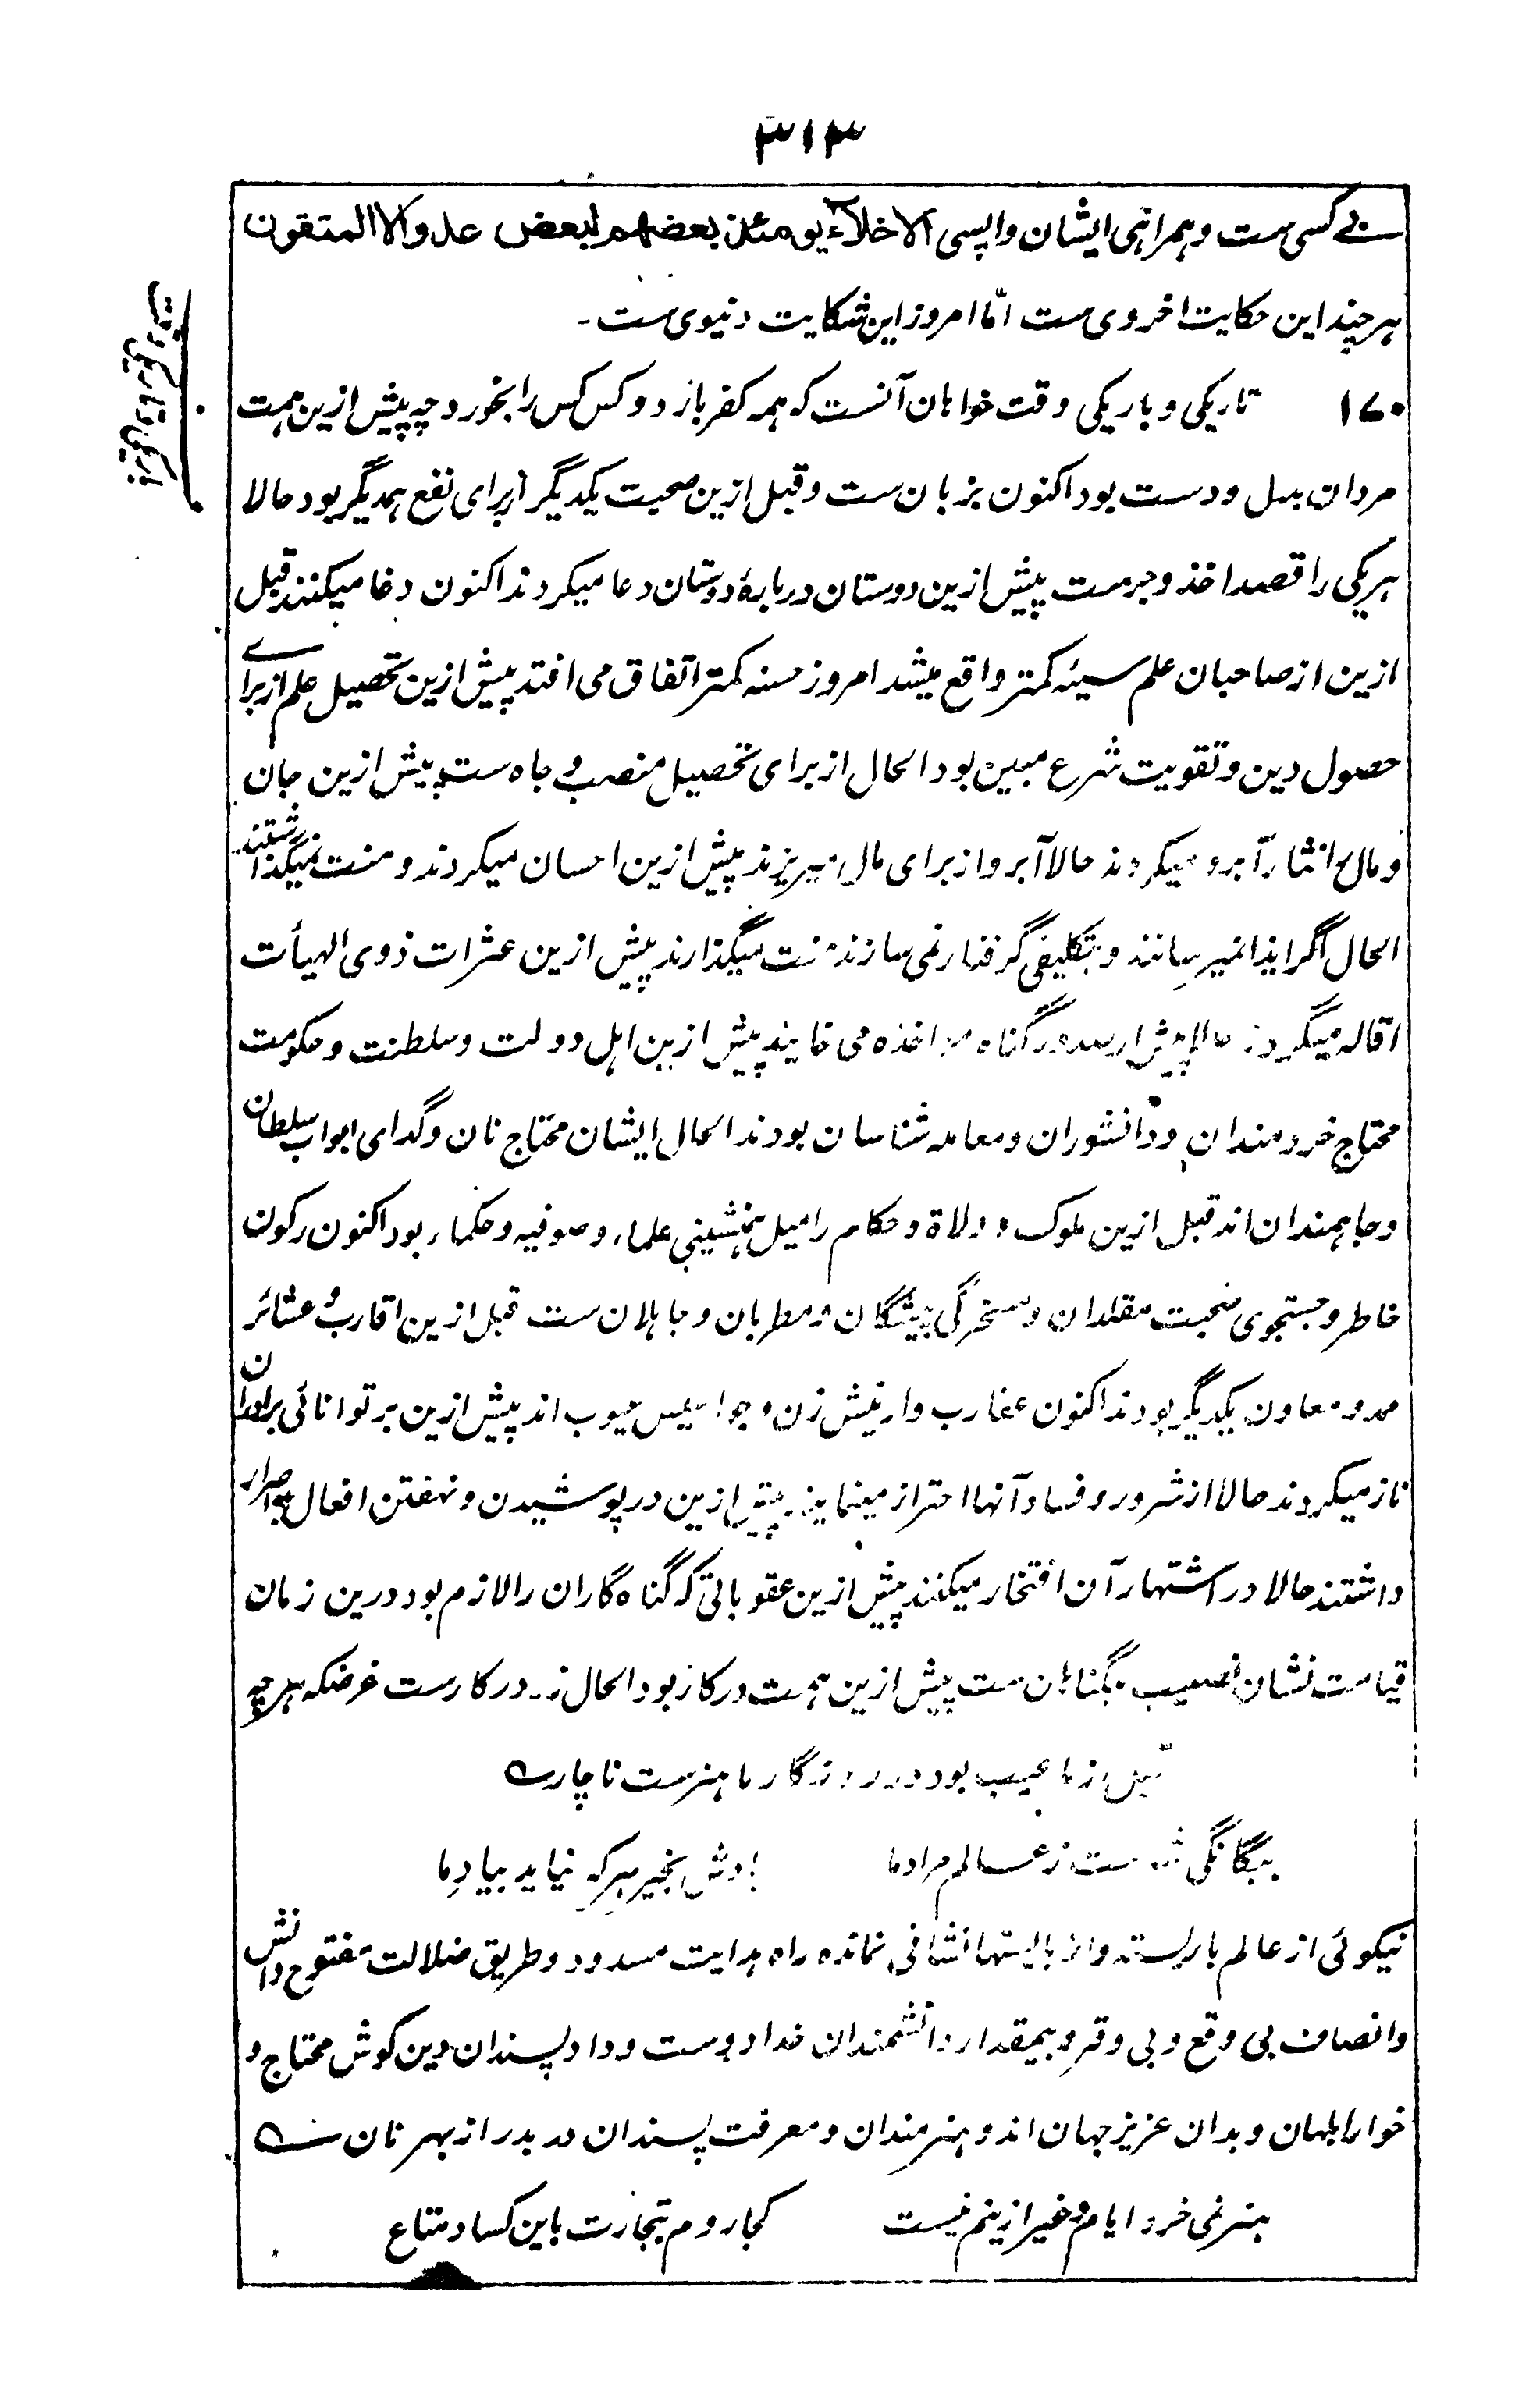 ۳۱۳
بے کسی ست و همراهی ایشان واپسی الاخلاء یومئذ بعضهم لبعض عدو الا المتقون
هر چند این حکایت اخروی ست امّا امروز این شکایت دنیوی ست -
۱۷۰ تاریکی و باریکی وقت خواهان آنست که همه کفر بازد و کس کس را نخورد چه پیش ازین همت
مردان بدل و دست بود اکنون بزبان ست و قبل ازین صحبت یکدیگر از برای نفع همدیگر بود حالا
هر یکی را قصد اخذ و جر ست پیش ازین دوستان دربارهٔ دوستان دعا میکردند اکنون دغا میکنند قبل
ازین از صاحبان علم سیئه کمتر واقع میشد امروز حسنه کمتر اتفاق می افتد پیش ازین تحصیل علم از برای
حصول دین و تقویت شرع مبین بود الحال از برای تحصیل منصب و جاه ست پیش ازین جان
و مال را نثار آبرو میکردند حالا آبرو از برای مال میریزند پیش ازین احسان میکردند و منت نمیگذاشتند
الحال اگر ایذا نمیرسانند و بتکلیفی گرفتار نمی سازند منت میگذارند پیش ازین عثرات ذوی الهیأت
اقاله میکردند حالا پیش از صدور گناه مواخذه می نمایند پیش ازین اهل دولت و سلطنت و حکومت
محتاج خردمندان و دانشوران و معامله شناسان بودند الحال ایشان محتاج نان و گدای ابواب سلطان
و جاهمندان اند قبل ازین ملوک و ولاة و حکام را میل همنشینی علماء و صوفیه و حکماء بود اکنون رکون
خاطر و جستجوی صحبت مقلدان و مسخرگی پیشگان و مطربان و جاهلان ست قبل ازین اقارب و عشائر
ممد و معاون یکدیگر بودند اکنون عقارب وار نیش زن و جواسیس عیوب اند پیش ازین بر توانائی برادران
ناز میکردند حالا از شرور و فساد آنها احتراز مینمایند پیش ازین در پوشیدن و نهفتن افعال بد اصرار
داشتند حالا در اشتهار آن افتخار میکنند پیش ازین عقوباتی که گناه گاران را لازم بود درین زمان
قیامت نشان نصیب بیگناهان ست پیش ازین همت در کار بود الحال زر در کارست غرضکه هر چه
قبل از ما عیب بود در روزگار ما هنرست ناچار ے
بیگانگی شده ست ز عالم مراد ما یادش بخیر هر که نیاید بیاد ما
نیکوئی از عالم بار بسته و از بایستها نشانی نمانده راه هدایت مسدود و طریق ضلالت مفتوح دانش
و انصاف بی وقع و بی وقر و بیمقدار دانشمندان خدا دوست و داد پسندان دین کوش محتاج و
خوار ابلهان و بدان عزیز جهان اند و هنرمندان و معرفت پسندان در بدر از بهر نان ے
هنر نمی خرد ایام و غیر ازینم نیست کجا روم بتجارت باین کساد متاع